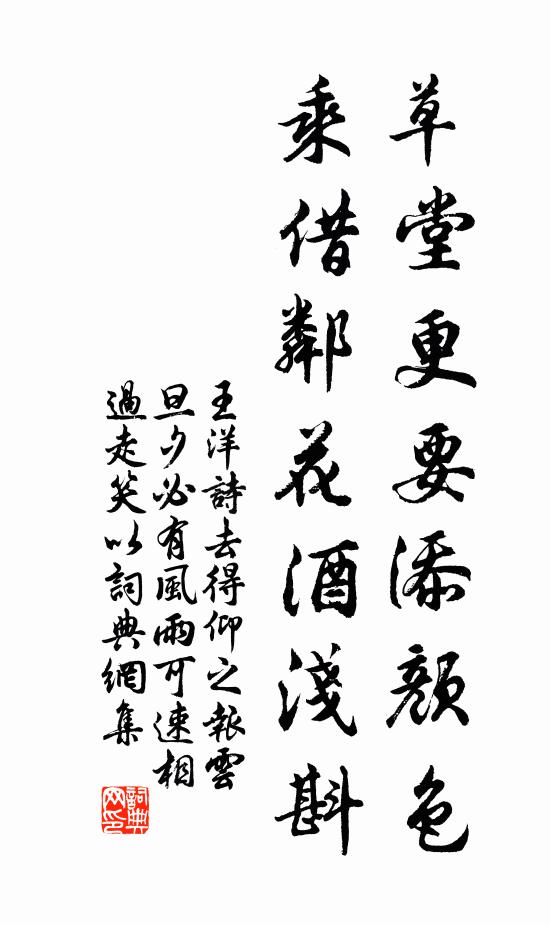 草堂更要添顏色
乘借鄰花酒淺斟
王洋詩去得仰之報雲
旦夕必有風雨可速相
過走笑以詞典網集
詞典網印